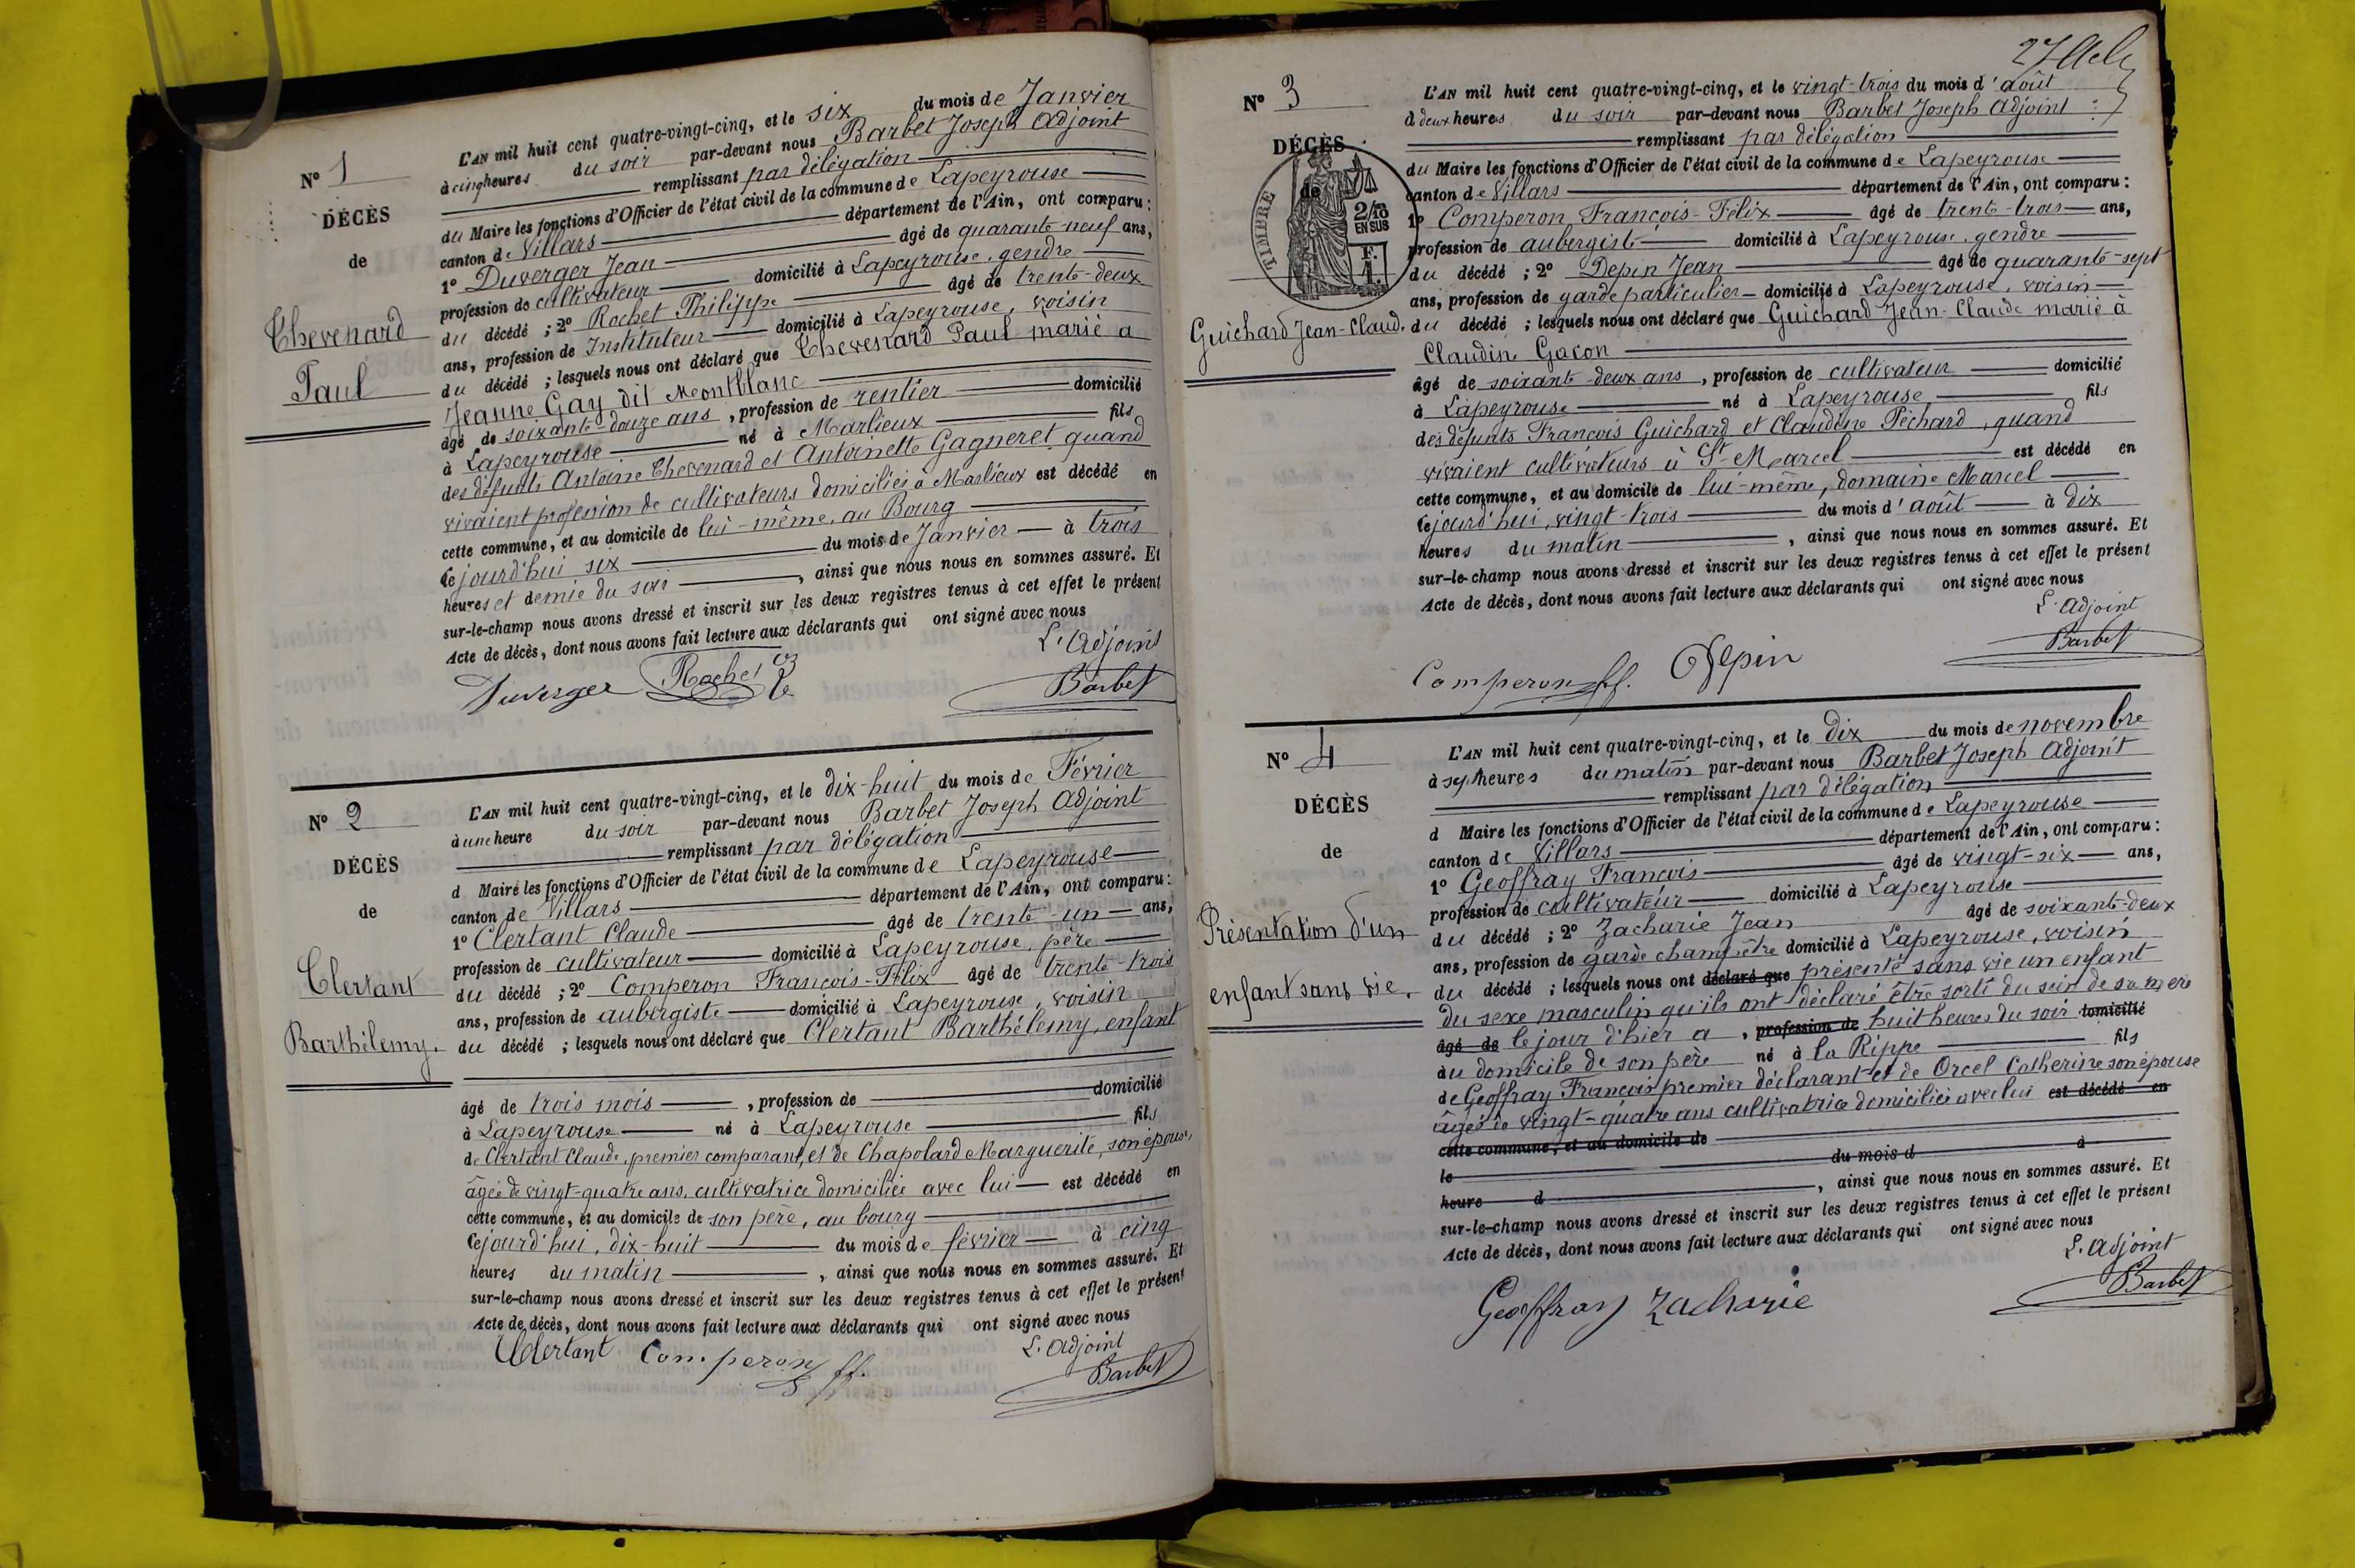 N° 1
DÉCÈS
de
Chevenard
Paul
L'AN mil huit cent quatre-vingt-cinq, et le six du mois de Janvier
à cinq heures du soir par-devant nous Barbet Joseph Adjoint
remplissant par délégation
du Maire les fonctions d'Officier de l'état civil de la commune de Lapeyrouse
canton de Villars département de l'Ain, ont comparu :
1° Duverger Jean âgé de quarante-neuf ans,
profession de cultivateur domicilié à Lapeyrouse, gendre
du décédé ; 2° Rochet Philippe âgé de trente-deux
ans, profession de Instituteur domicilié à Lapeyrouse, voisin
du décédé ; lesquels nous ont déclaré que Chevenard Paul marié a
Jeanne Gay dit Montblanc
âgé de soixante-douze ans, profession de rentier domicilié
à Lapeyrouse né à Marlieux fils
des défunts Antoine Chevenard et Antoinette Gagneret quand
vivaient profession de cultivateurs domiciliés à Marlieux est décédé en
cette commune, et au domicile de lui-même, au Bourg
cejourd'hui six du mois de Janvier à trois
heures et demie du soir, ainsi que nous nous en sommes assuré. Et
sur-le-champ nous avons dressé et inscrit sur les deux registres tenus à cet effet le présent
Acte de décès, dont nous avons fait lecture aux déclarants qui ont signé avec nous
L'Adjoint
Duverger Rochet Barbet
N° 2
DÉCÈS
de
Clertant
Barthélemy.
L'AN mil huit cent quatre-vingt-cinq, et le dix-huit du mois de Février
à une heure du soir par-devant nous Barbet Joseph Adjoint
remplissant par délégation
d Maire les fonctions d'Officier de l'état civil de la commune de Lapeyrouse
canton de Villars département de l'Ain, ont comparu :
1° Clertant Claude âgé de trente-un ans,
profession de cultivateur domicilié à Lapeyrouse, père
du décédé ; 2° Comperon François-Félix âgé de trente-trois
ans, profession de aubergiste domicilié à Lapeyrouse, voisin
du décédé ; lesquels nous ont déclaré que Clertant Barthélemy, enfant
âgé de trois mois, profession de domicilié
à Lapeyrouse né à Lapeyrouse fils
de Clertant Claude, premier comparant, et de Chapolard Marguerite, son épouse,
âgée de vingt-quatre ans, cultivatrice domiciliée avec lui est décédé en
cette commune, et au domicile de son père, au bourg
cejourd'hui, dix-huit du mois de février à cinq
heures du matin, ainsi que nous nous en sommes assuré. Et
sur-le-champ nous avons dressé et inscrit sur les deux registres tenus à cet effet le présent
Acte de décès, dont nous avons fait lecture aux déclarants qui ont signé avec nous
L'Adjoint
Clertant Comperon ff. Barbet
N° 3
DÉCÈS
de
TIMBRE
2/10
EN SUS
F.
1.
Guichard Jean-Claud.
L'AN mil huit cent quatre-vingt-cinq, et le vingt-trois du mois d'août
à deux heures du soir par-devant nous Barbet Joseph Adjoint
remplissant par délégation
du Maire les fonctions d'Officier de l'état civil de la commune de Lapeyrouse
canton de Villars département de l'Ain, ont comparu :
1° Comperon François-Félix âgé de trente-trois ans,
profession de aubergiste domicilié à Lapeyrouse, gendre
du décédé ; 2° Depin Jean âgé de quarante-sept
ans, profession de garde particulier domicilié à Lapeyrouse, voisin
du décédé ; lesquels nous ont déclaré que Guichard Jean-Claude marié à
Claudine Gacon
âgé de soixante-deux ans, profession de cultivateur domicilié
à Lapeyrouse né à Lapeyrouse fils
des défunts François Guichard et Claudine Péchard, quand
vivaient cultivateurs à St Marcel est décédé en
cette commune, et au domicile de lui-même, domaine Marcel
cejourd'hui, vingt-trois du mois d'août à dix
heures du matin, ainsi que nous nous en sommes assuré. Et
sur-le-champ nous avons dressé et inscrit sur les deux registres tenus à cet effet le présent
Acte de décès, dont nous avons fait lecture aux déclarants qui ont signé avec nous
L'Adjoint
Comperon ff. Depin Barbet
N° 4
DÉCÈS
de
Présentation d'un
enfant sans vie.
L'AN mil huit cent quatre-vingt-cinq, et le dix du mois de novembre
à sept heures du matin par-devant nous Barbet Joseph Adjoint
remplissant par délégation
d Maire les fonctions d'Officier de l'état civil de la commune de Lapeyrouse
canton de Villars département de l'Ain, ont comparu :
1° Geoffray François âgé de vingt-six ans,
profession de cultivateur domicilié à Lapeyrouse
du décédé ; 2° Zacharie Jean âgé de soixante-deux
ans, profession de garde champêtre domicilié à Lapeyrouse, voisin
du décédé ; lesquels nous ont déclaré que présenté sans vie un enfant
du sexe masculin qu'ils ont déclaré être sorti du sein de sa mère
âgé de le jour d'hier a, profession de huit heures du soir domicilié
au domicile de son père né à la Rippe fils
de Geoffray François premier déclarant et de Orcel Catherine son épouse
âgée de vingt-quatre ans cultivatrice domiciliée avec lui est décédé en
cette commune, et au domicile de
le du mois d à
heure d, ainsi que nous nous en sommes assuré. Et
sur-le-champ nous avons dressé et inscrit sur les deux registres tenus à cet effet le présent
Acte de décès, dont nous avons fait lecture aux déclarants qui ont signé avec nous
L'Adjoint
Geoffray Zacharie Barbet